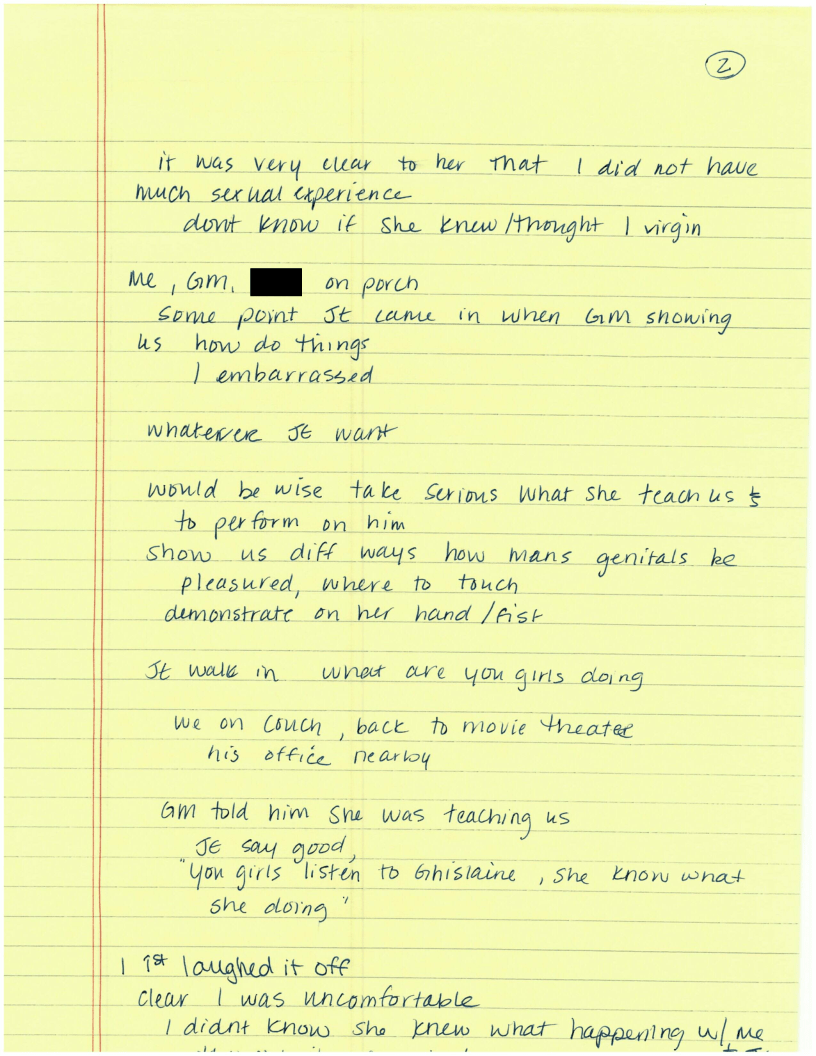 2
it was very clear to her that I did not have
much sexual experience
dont know if she knew/thought I virgin
Me, GM, on porch
some point JE came in when GM showing
us how do things
I embarrassed
whatever JE want
would be wise take serious what she teach us
to perform on him
show us diff ways how mans genitals be
pleasured, where to touch
demonstrate on her hand/fist
JE walk in what are you girls doing
we on couch, back to movie theater
his office nearby
GM told him she was teaching us
JE say good,
"you girls listen to Ghislaine, she know what
she doing"
I 1st laughed it off
clear I was uncomfortable
I didnt know she knew what happening w/ me